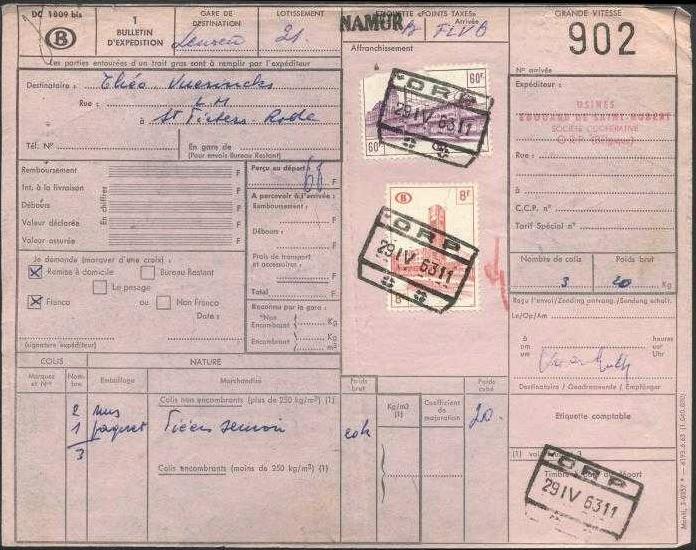 DC 1809 bis
B
1
BULLETIN
D'EXPEDITION
GARE DE
DESTINATION
LOTISSEMENT
21
NAMUR
ETIQUETTE «POINTS TAXES»
Arrivée
FLV B
GRANDE VITESSE
902
Les parties entourées d'un trait gras sont à remplir par l'expéditeur
Affranchissement
N° arrivée
Destinataire : Théo Vuerinckx
Rue :
à St Pieters-Rode
Tél. N°
En gare de
(Pour envois Bureau Restant)
Expéditeur :
USINES
EDOUARD DE SAINT-HUBERT
SOCIÉTÉ COOPÉRATIVE
ORP (Belgique)
Rue :
à
C.C.P. n°
Tarif Spécial n°
60F
60F
ORP
29 IV 63 11
B
8F
8F
ORP
29 IV 63 11
Remboursement F
Int. à la livraison F
Débours F
Valeur déclarée F
Valeur assurée F
En chiffres
Perçu au départ :
68 F
A percevoir à l'arrivée :
Remboursement :
F
Débours :
F
Frais de transport
et accessoires :
F
Total F
Je demande (marquer d'une croix) :
X Remise à domicile
Bureau Restant
Le pesage
X Franco
ou
Non Franco
Date :
(signature expéditeur)
Reconnu par la gare :
*Non
Encombant Kg
Encombant Kg
m3
Nombre de colis
3
Poids brut
20 Kg
Reçu l'envoi/Zending ontvang./Sendung erhalt.
Le/Op/Am
à heures
om uur
um Uhr
Destinataire / Geadresseerde / Empfänger
COLIS
NATURE
Marques
et Nos
Nombre
Emballage
Marchandise
Poids
brut
Kg/m3
(1)
Coefficient
de
majoration
Poids
cubé
Colis non encombrants (plus de 250 kg/m3) (1)
2 nus
1 paquet
3
20
Colis encombrants (moins de 250 kg/m3) (1)
Etiquette comptable
ORP
29 IV 63 11